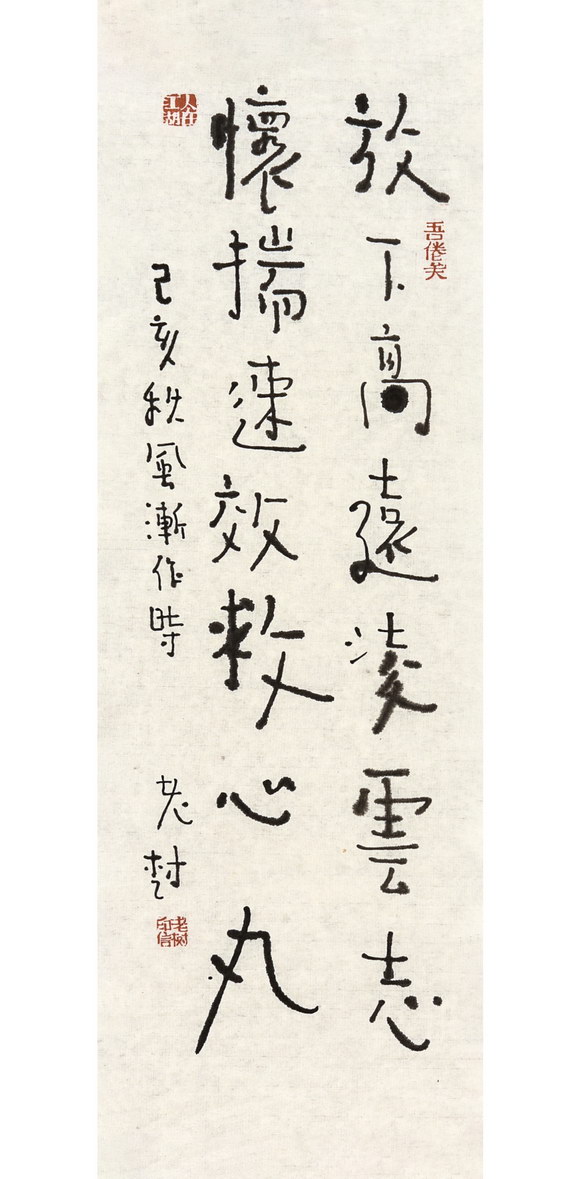 放下高遠淩雲志
懷揣速效救心丸
己亥秋風漸作時
老樹
吾倦矣
人在江湖
老树印信